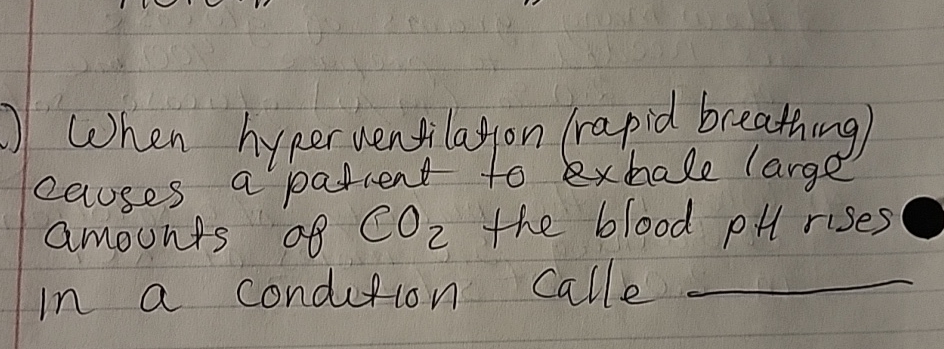 .) When hyperventilation (rapid breathing)
causes a patient to exhale large
amounts of CO₂ the blood pH rises
in a condition calle ______